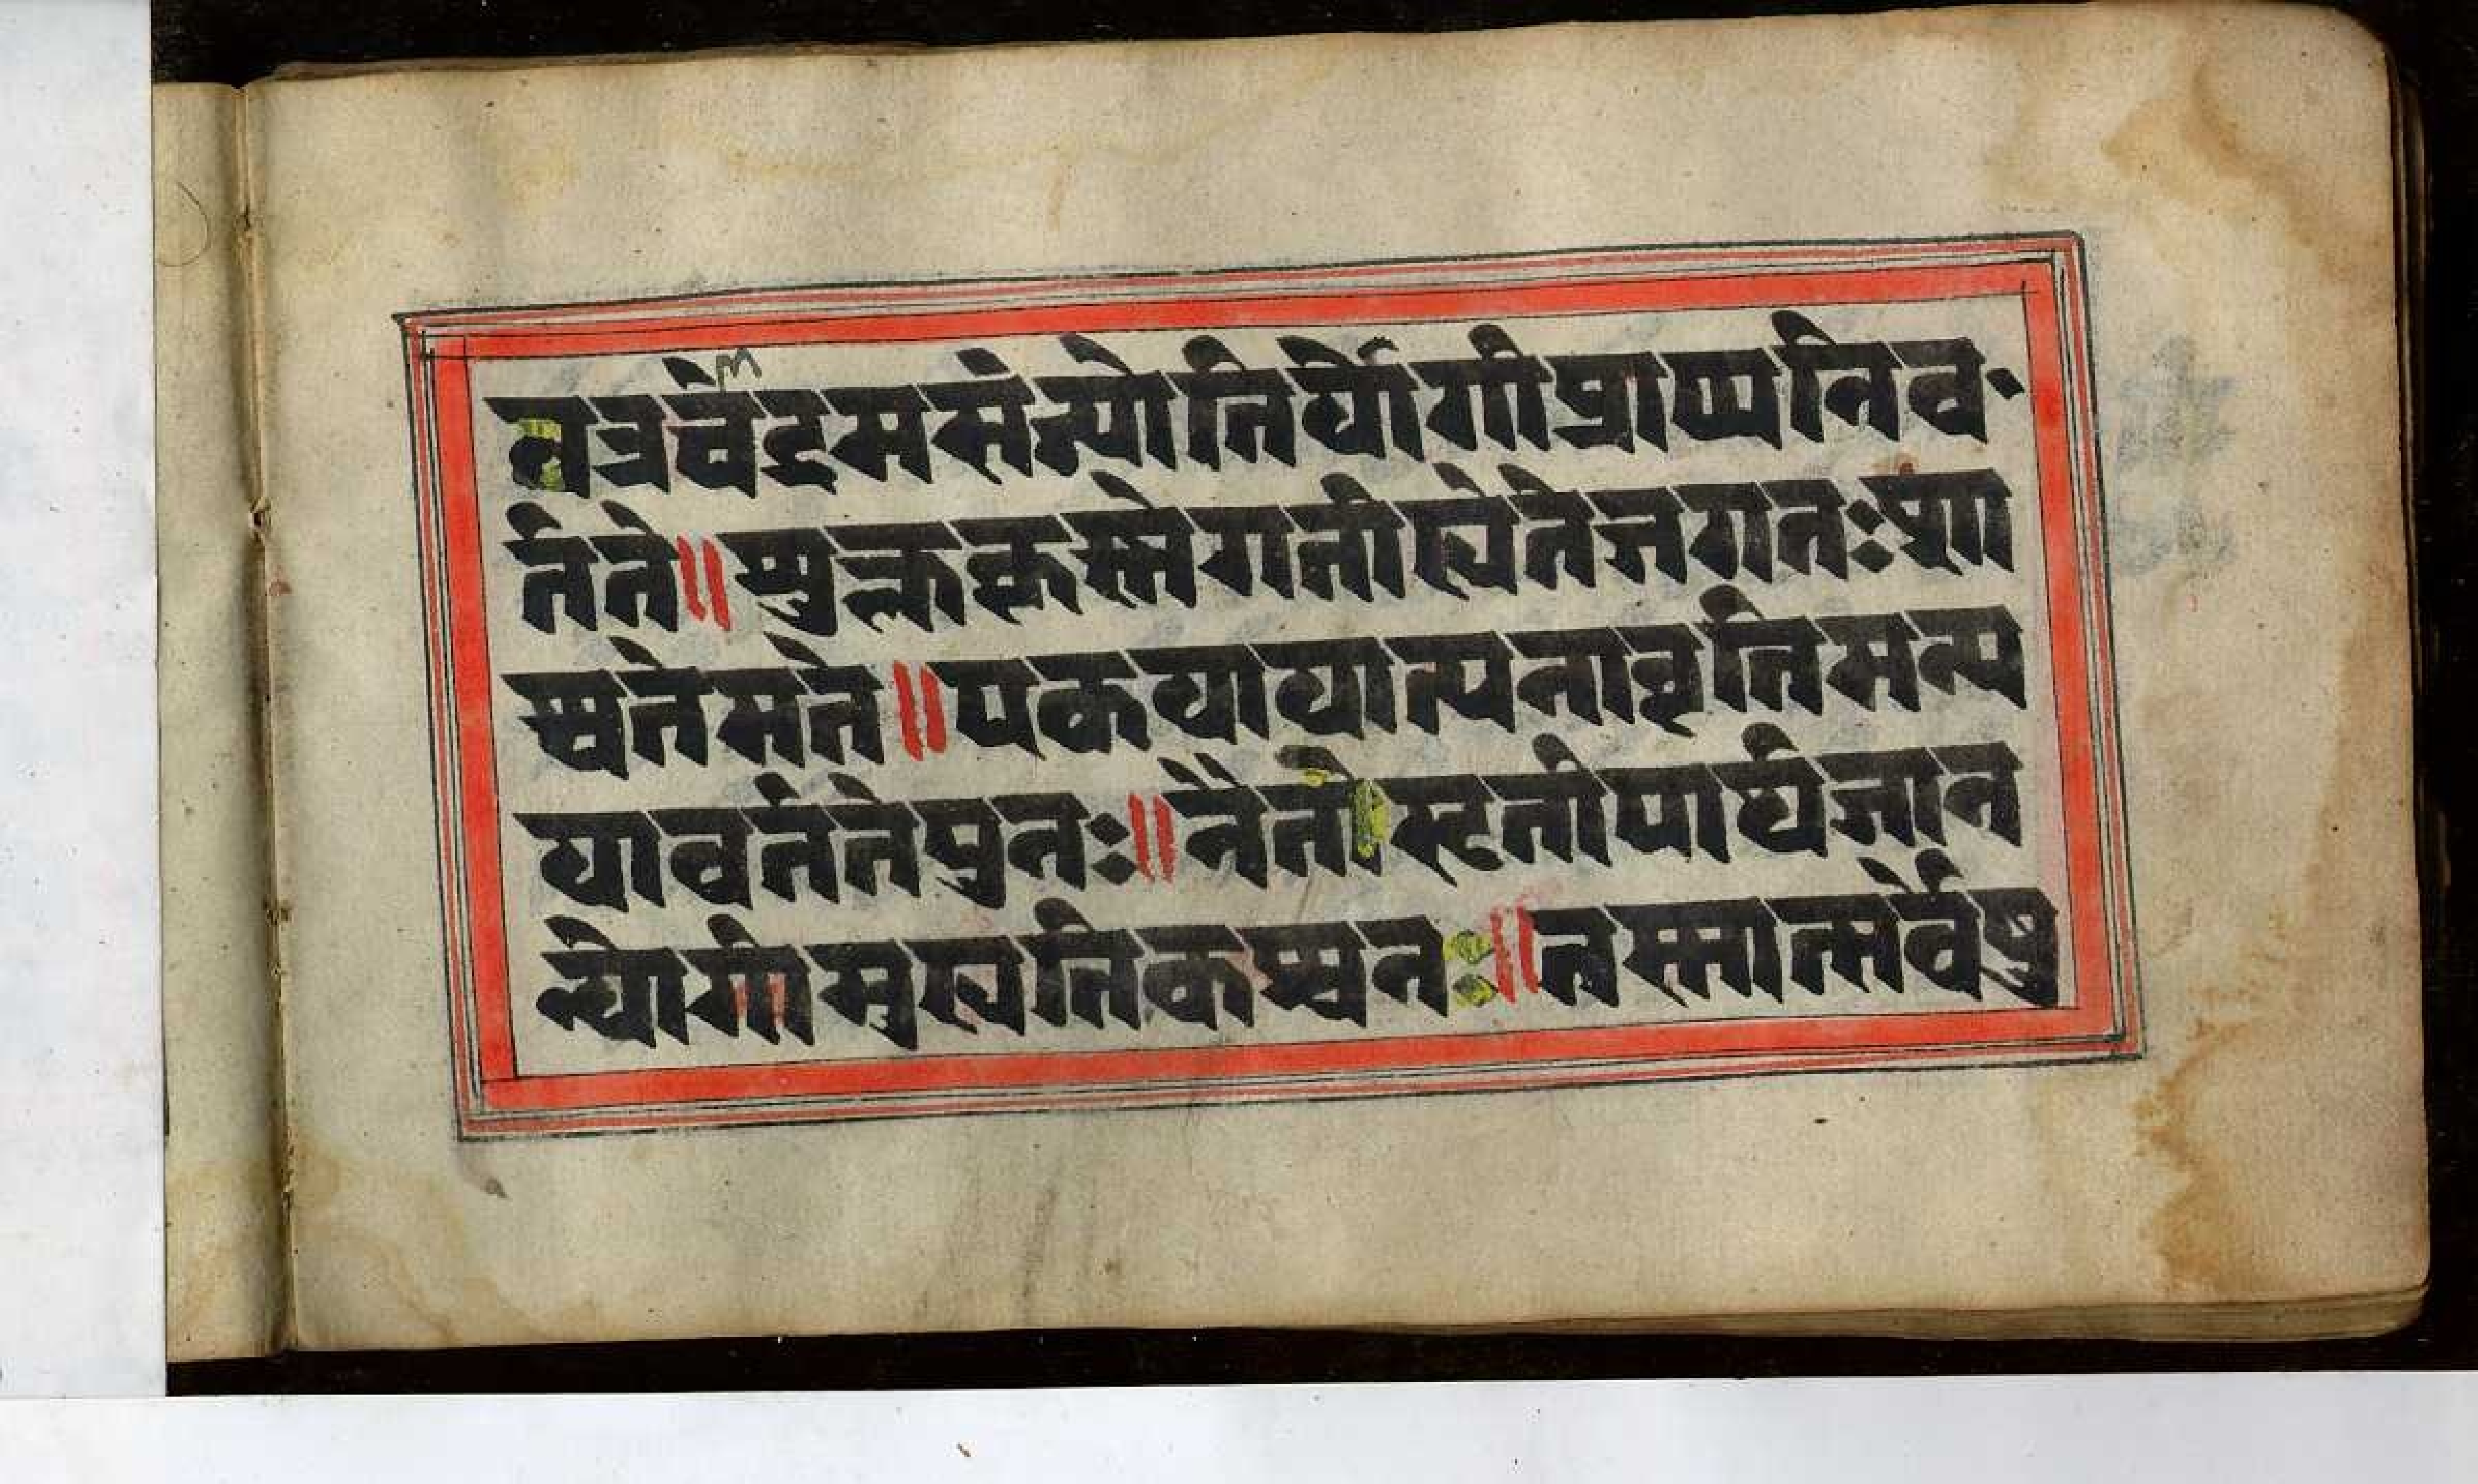 तत्रचेंद्रमसंज्योतिर्योगीप्राप्यनिव·
र्तते॥शुक्लकृस्नेगतीह्येतेजगतःशा
श्वतेमते॥एकयायात्यनावृत्तिमन्य
यावर्ततेपुनः॥नैतेसृतीपार्थजान
न्योगीमुह्यतिकश्चनः॥तस्मात्सर्वेषु